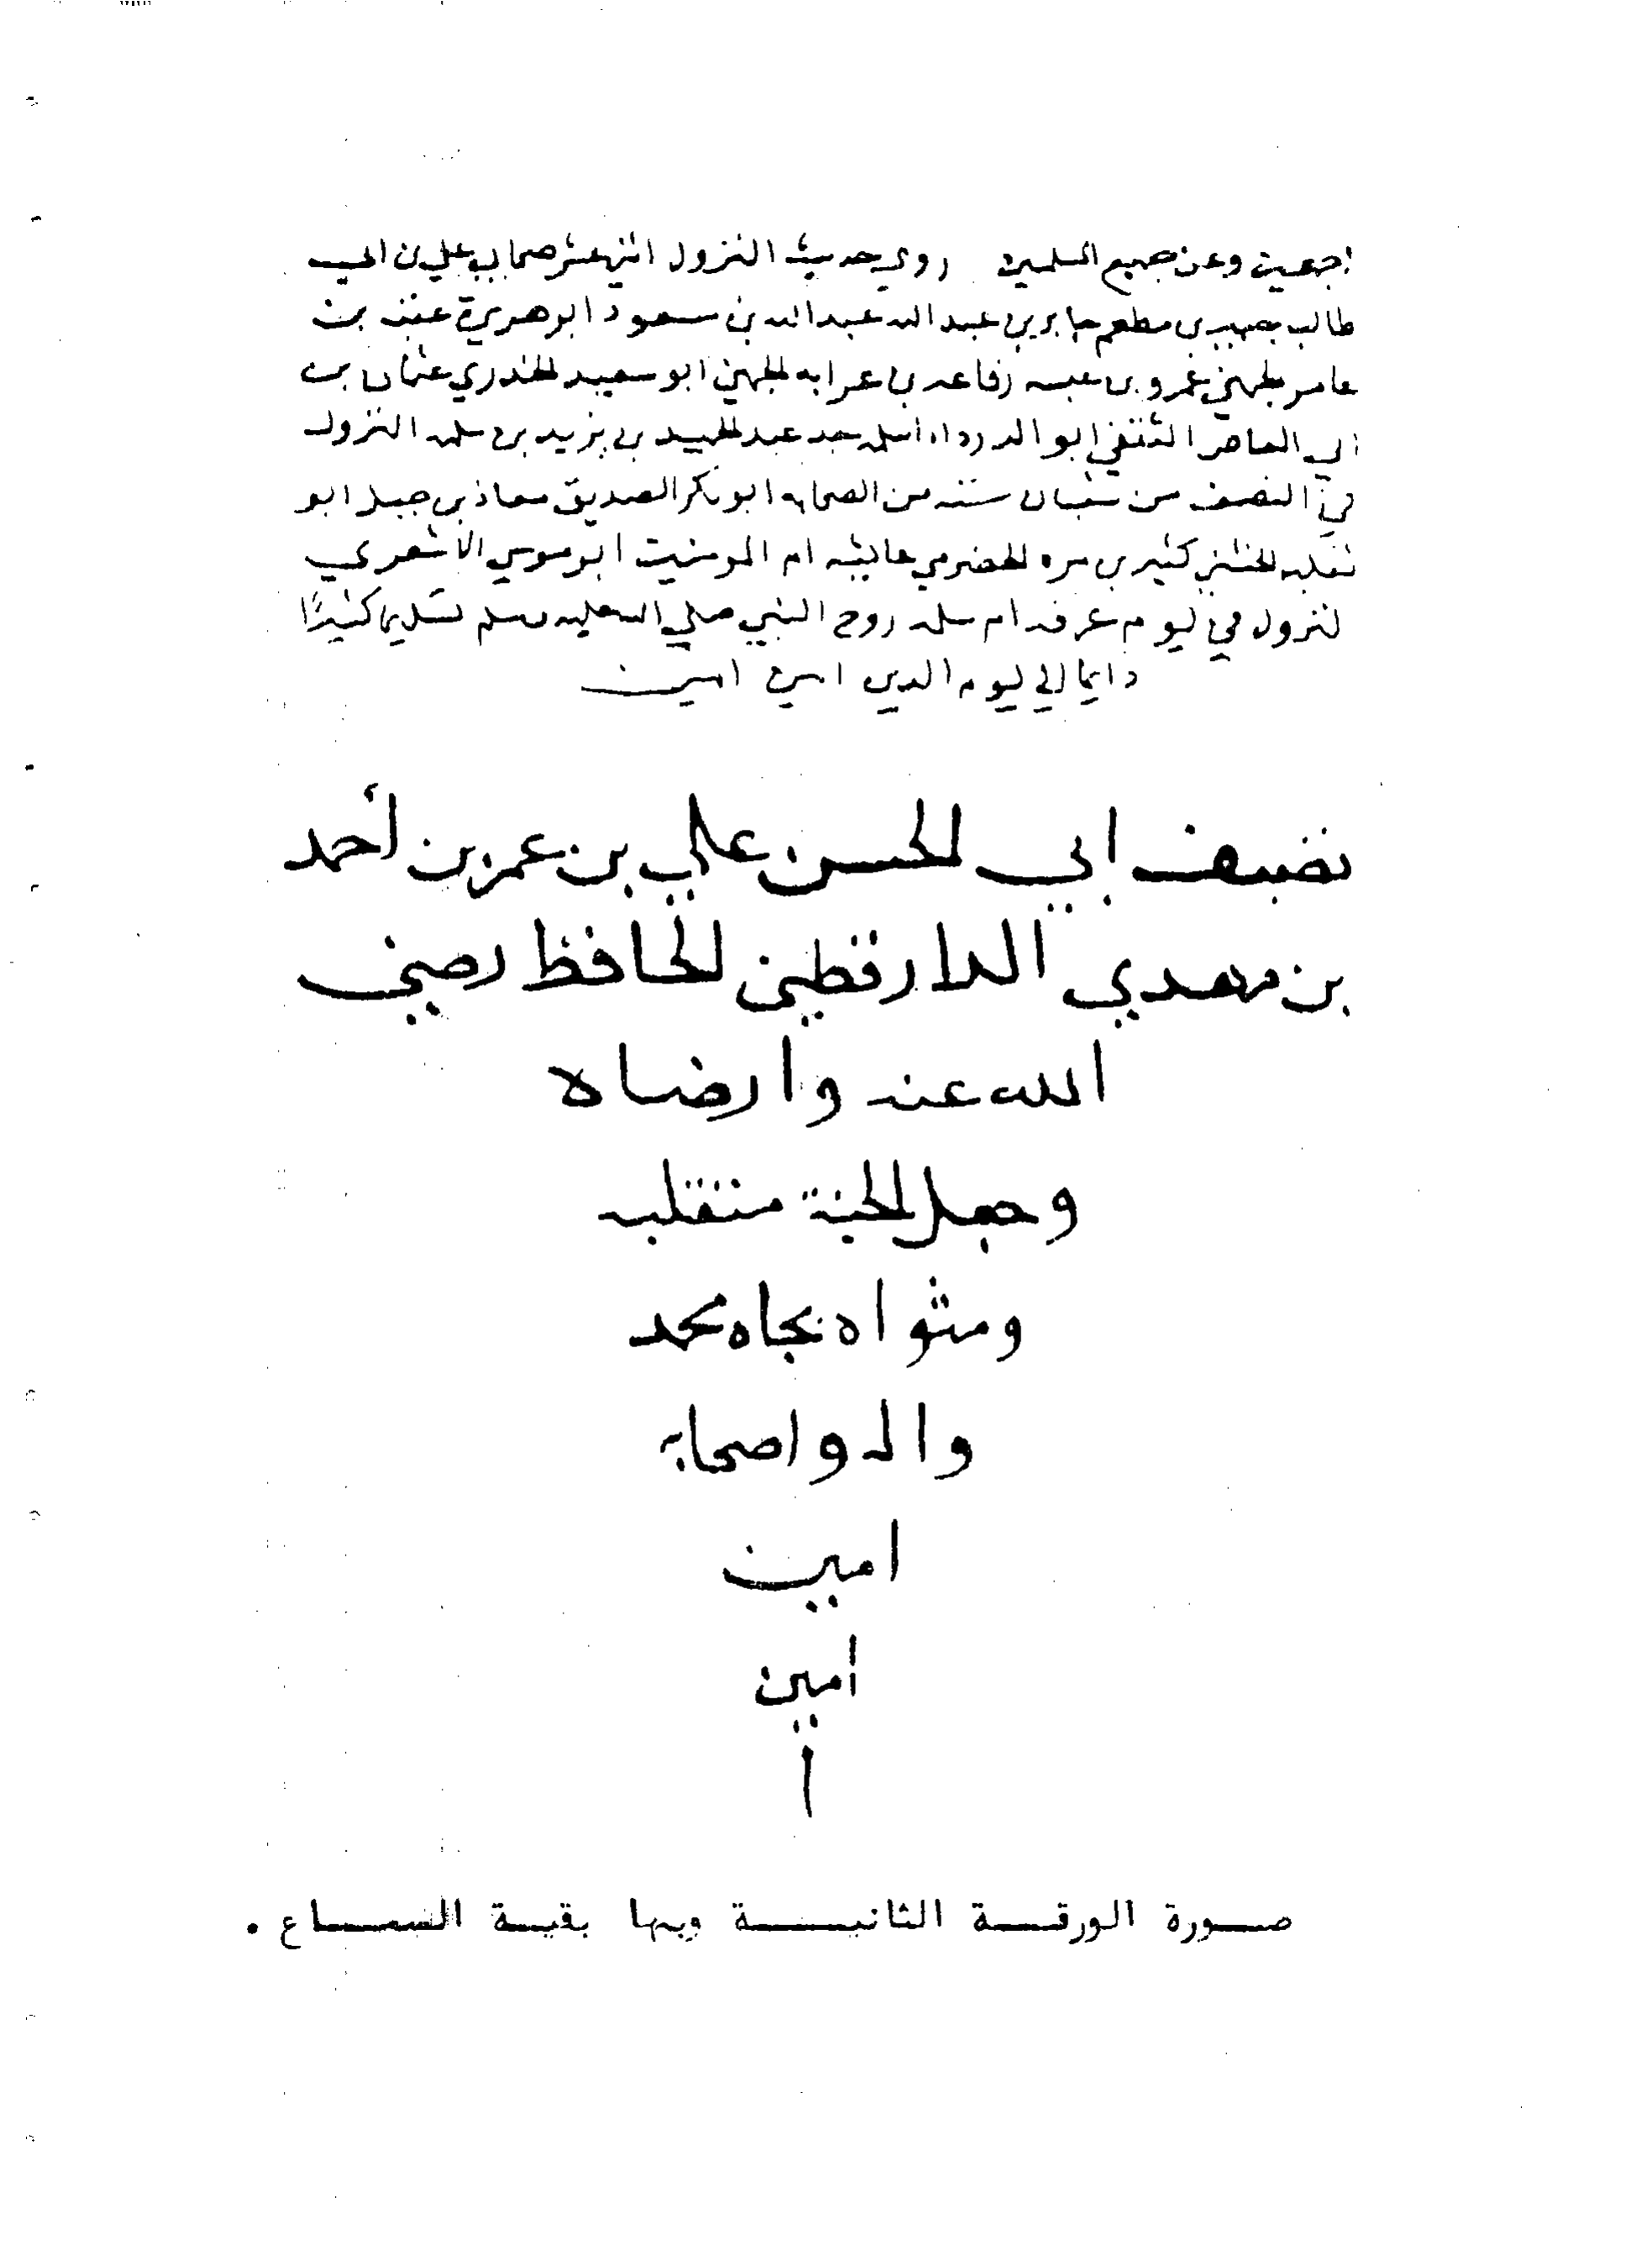 اجمعين وعن جميع المسلمين روي حديث النزول اثني عشر صحابي علي بن ابي
طالب جبير بن مطعم جابر بن عبد الله عبد الله بن مسعود ابو هريرة عقبه بن
عامر الجهني عمرو بن عبسه رفاعه بن عرابه الجهني ابو سعيد الخدري عثمان بن
ابي العاص الثقفي ابو الدرداء سلمه جد عبد الحميد بن يزيد بن سلمه النزول
في النصف من شعبان سته من الصحابه ابو بكر الصديق معاذ بن جبل ابو
ثعلبه الخشني كثير بن مره الحضرمي عايشه ام المومنين ابو موسي الاشعري
لنزول في يوم عرفه ام سلمه زوج النبي صلي الله عليه وسلم تسليما كثيرًا
دايما الي يوم الدين امين امين
تصنيف ابي الحسن علي بن عمر بن أحمد
بن مهدي الدارقطني الحافظ رضي
الله عنه وارضاه
وجعل الجنة متقلبه
ومثواه بجاه محمد
واله واصحابه
امين
امين
ا
صورة الورقة الثانية وبها بقية السماع .